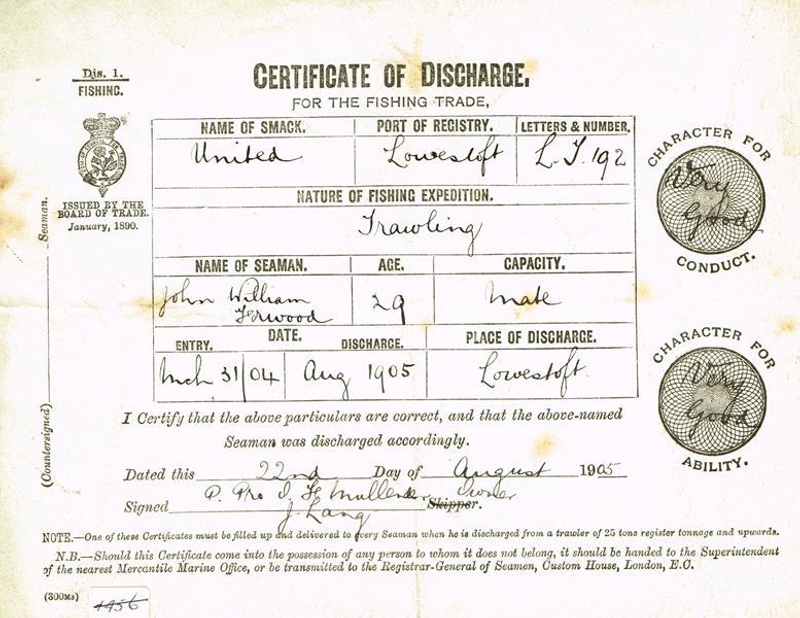 Dis. 1.
FISHING.
CERTIFICATE OF DISCHARGE.
FOR THE FISHING TRADE,
ISSUED BY THE
BOARD OF TRADE.
January, 1890.
NAME OF SMACK. PORT OF REGISTRY. LETTERS & NUMBER.
United Lowestoft L.T. 192
NATURE OF FISHING EXPEDITION.
Trawling
NAME OF SEAMAN. AGE. CAPACITY.
John William 29 Mate
DATE. PLACE OF DISCHARGE.
ENTRY. DISCHARGE.
Mch 31/04 Aug 1905 Lowestoft
CHARACTER FOR
Very
Good
CONDUCT.
CHARACTER FOR
Very
Good
ABILITY.
Seaman.
(Countersigned)
I Certify that the above particulars are correct, and that the above-named
Seaman was discharged accordingly.
Dated this 22nd Day of August 1905
P. Pro Owner
Signed J. Lang Skipper.
NOTE.—One of these Certificates must be filled up and delivered to every Seaman when he is discharged from a trawler of 25 tons register tonnage and upwards.
N.B.—Should this Certificate come into the possession of any person to whom it does not belong, it should be handed to the Superintendent
of the nearest Mercantile Marine Office, or be transmitted to the Registrar-General of Seamen, Custom House, London, E.C.
(300Ms)
1956